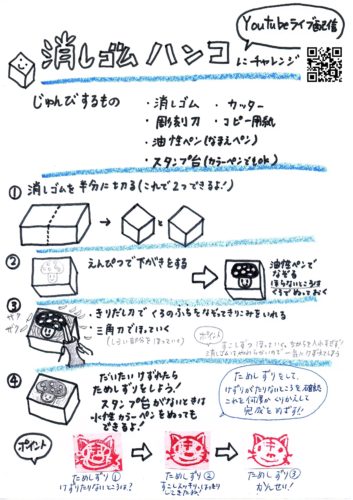 Youtubeライブ配信
消しゴム ハンコ にチャレンジ
じゅんびするもの
・消しゴム ・カッター
・彫刻刀 ・コピー用紙
・油性ペン(なまえペン)
・スタンプ台(カラーペンでもok)
① 消しゴムを半分に切る(これで2つできるよ!)
② えんぴつで下がきをする
油性ペンで
なぞる
ほらないところは
くろでぬっておく
③ ・きりだし刀で くろのふちをなぞってきりこみをいれる
・三角刀でほっていく
(しろい部分をほっていく)
ポイント
④ だいたい けずれたら
ためしずりをしよう!
スタンプ台がないときは
水性カラーペンをぬっても
できるよ!
ためしずりをして、
けずりがたりないところを確認
これを何度かくりかえして
完成をめざす!!
ポイント
ためしずり①
けずりたりないところは?
ためしずり②
ためしずり③
かんせい!